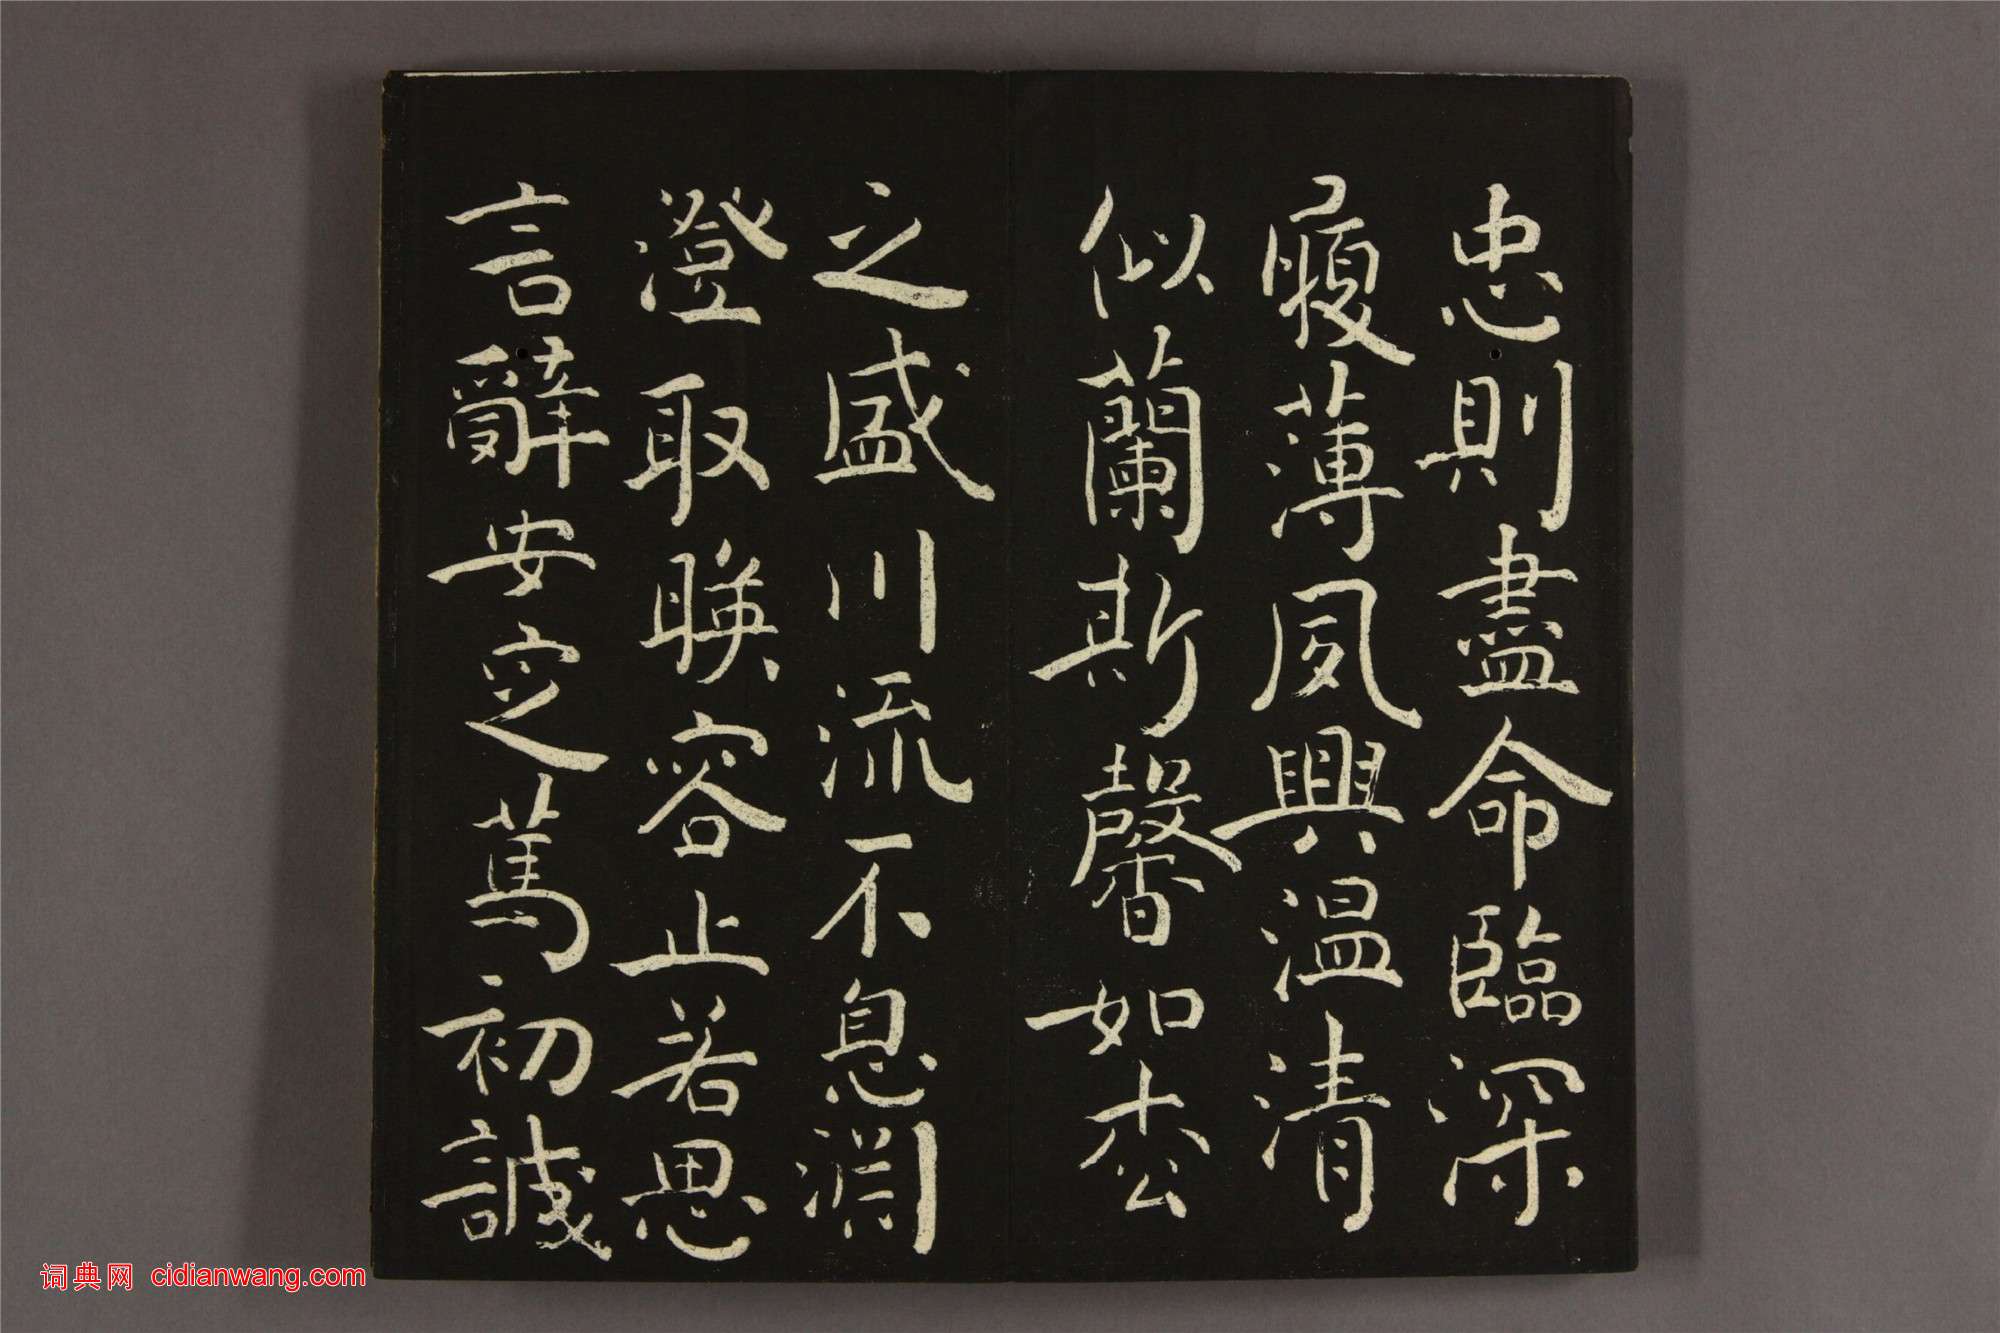 忠則盡命臨深
履薄夙興温凊
似蘭斯馨如松
之盛川流不息淵
澄取暎容止若思
言辭安定篤初誠
词典网 cidianwang.com